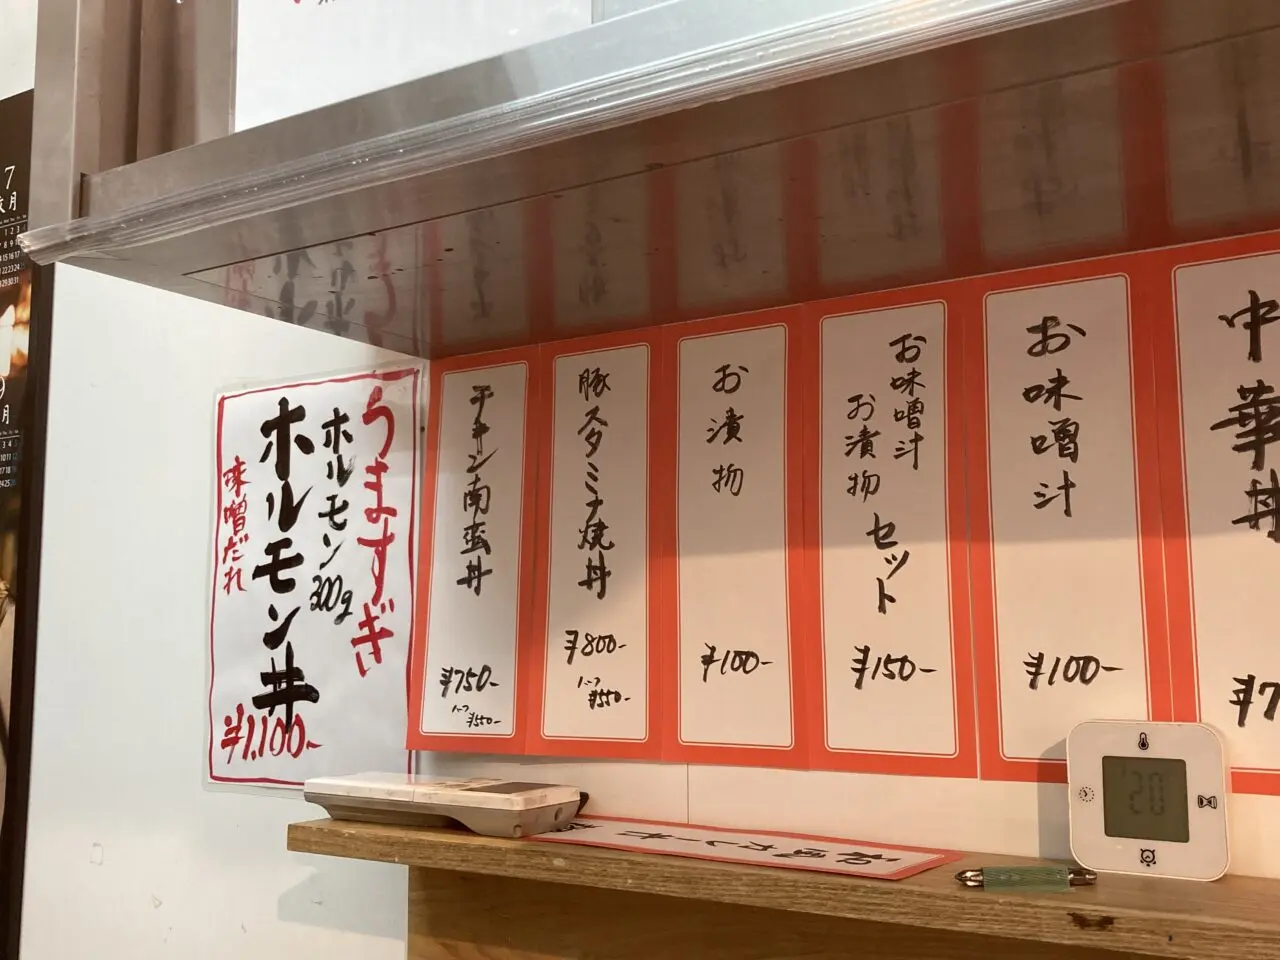 うますぎ
ホルモン300g
ホルモン丼
味噌だれ
¥1,100-
チキン南蛮丼
¥750-
ハーフ
¥550-
豚スタミナ焼丼
¥800-
ハーフ
¥550-
お漬物
¥100-
お味噌汁
お漬物
セット
¥150-
お味噌汁
¥100-
中華丼
¥7
和風カレー丼
20
7
月
9
月